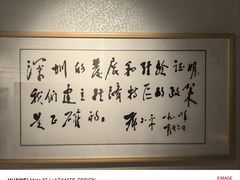 深圳的发展和经验证明，
我们建立经济特区的政策
是正确的。
邓小平 一九八四年
一月廿六日
HUAWEI Mate XT | ULTIMATE DESIGN
XMAGE